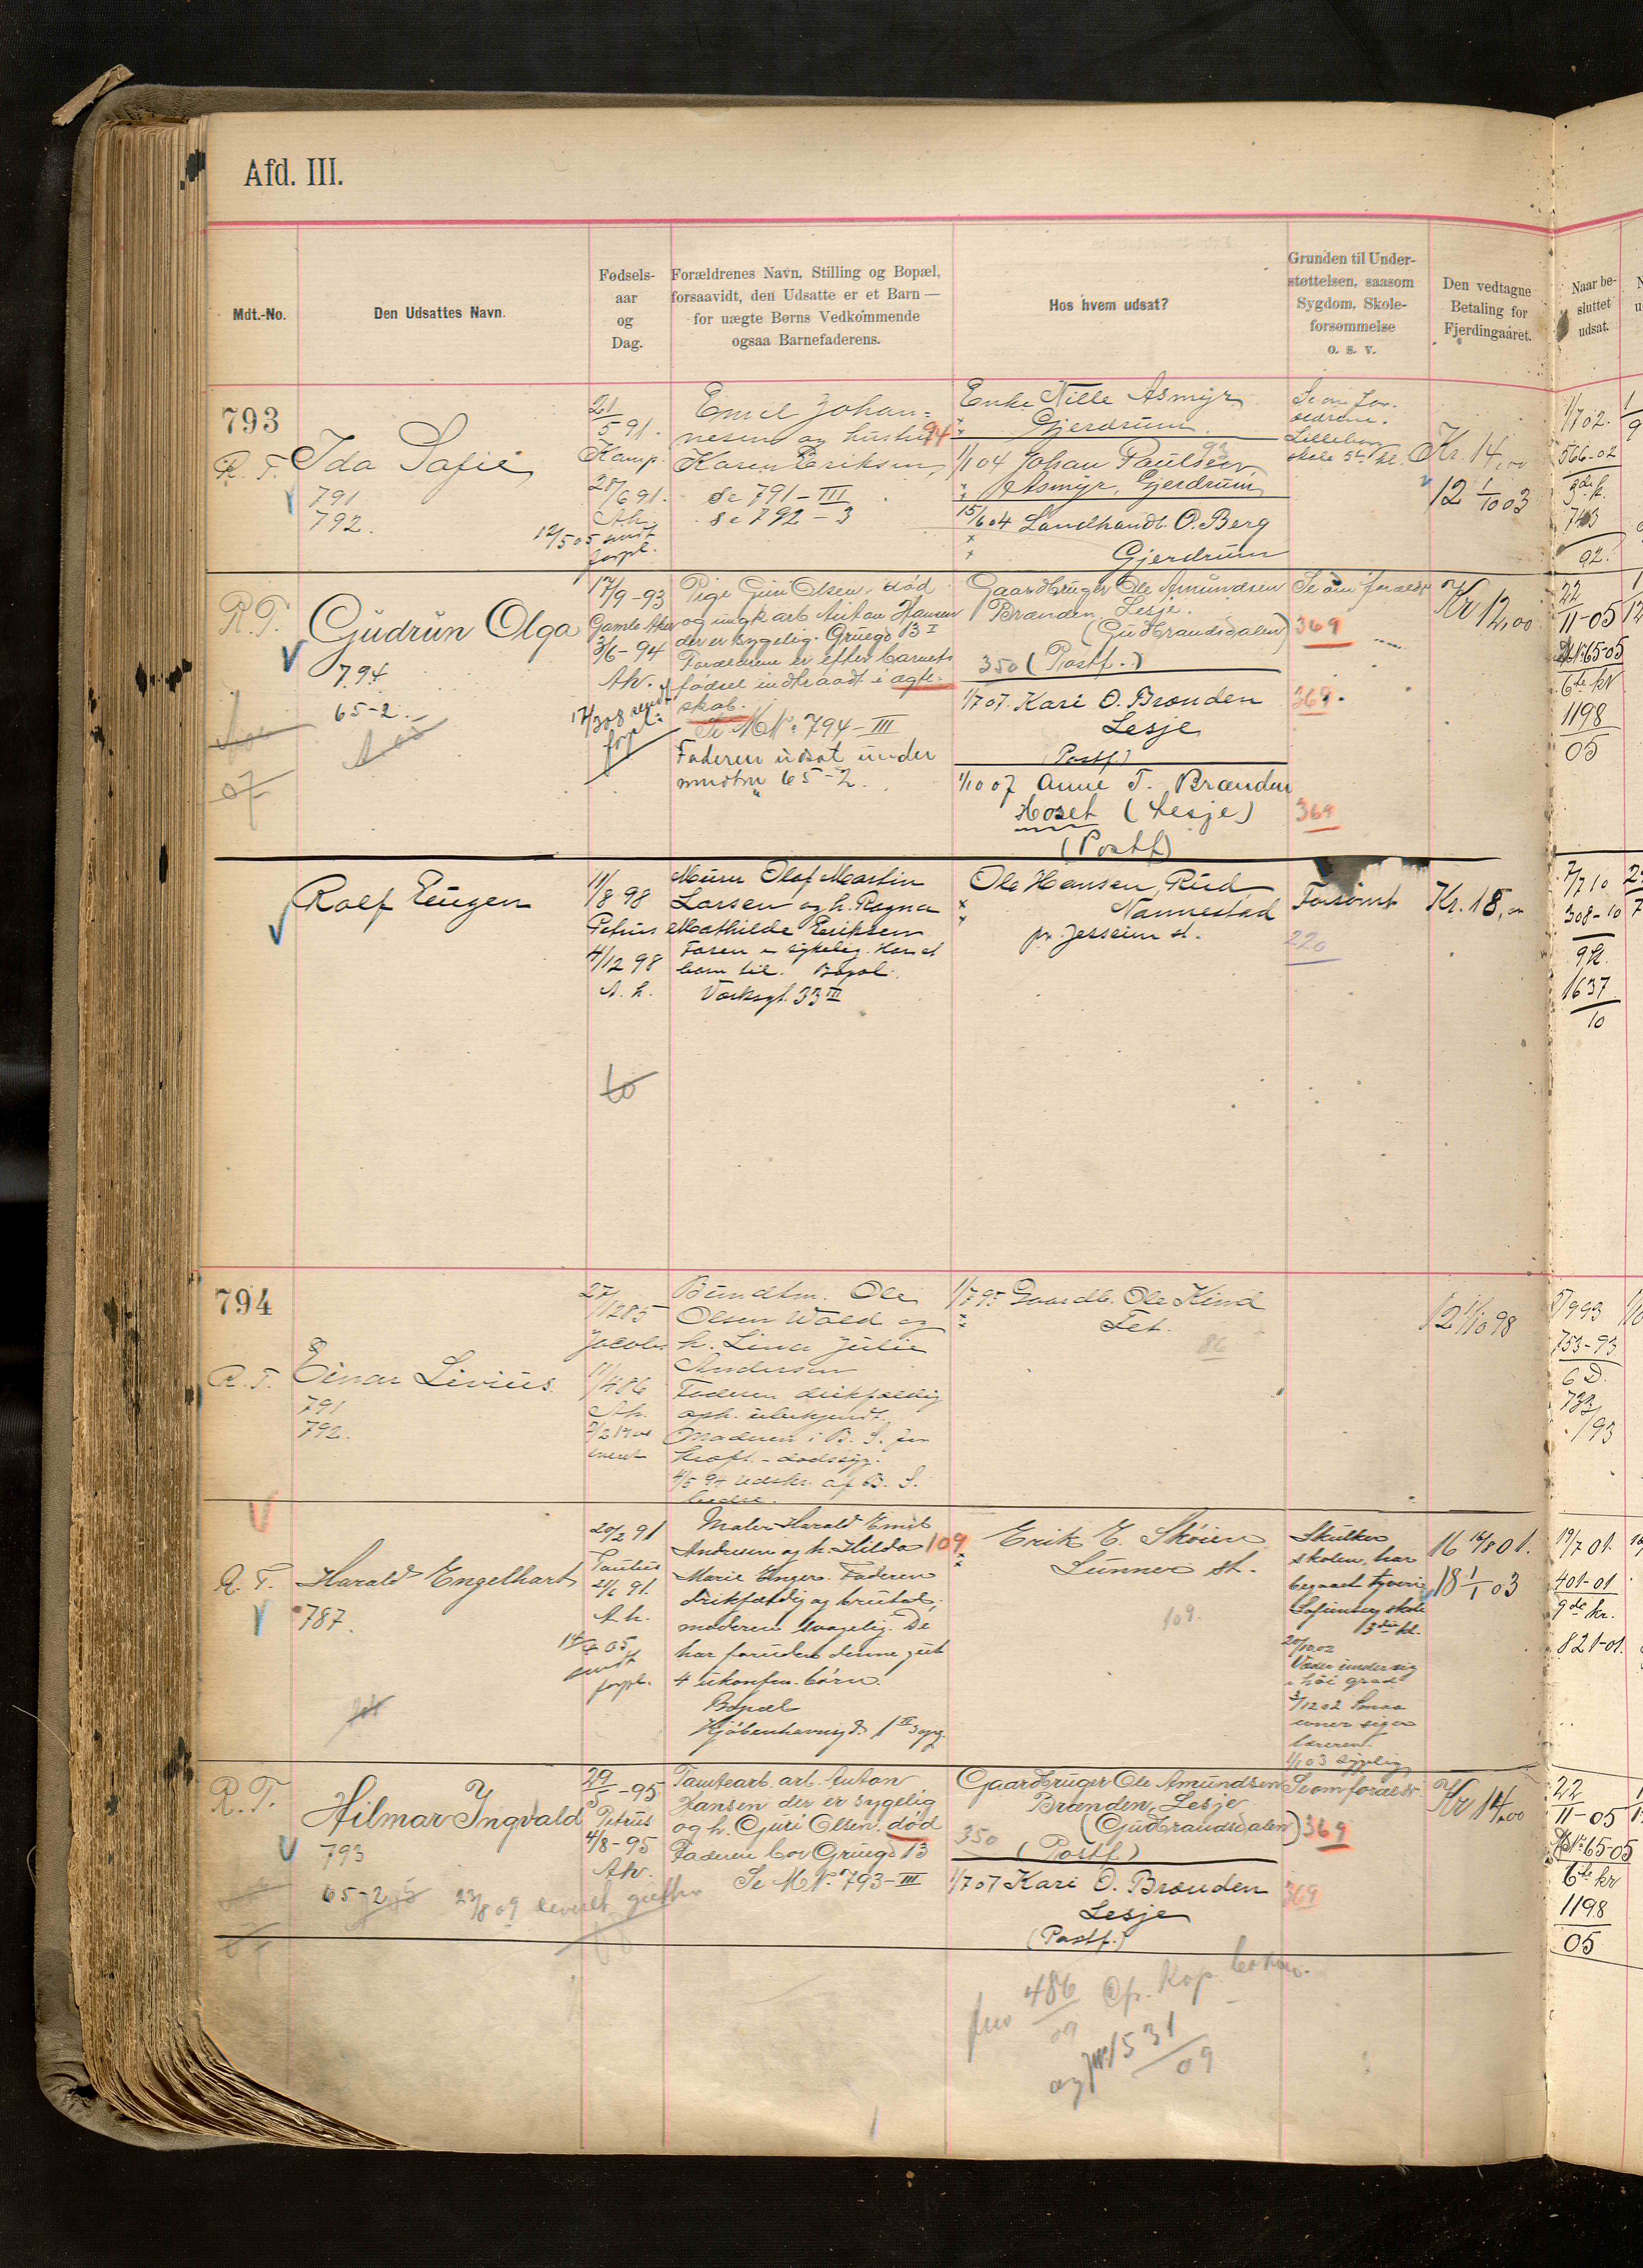 Afd. III.
Mdt.-No.
Den Udsattes Navn.
Fødsels-
aar
og
Dag.
Forældrenes Navn, Stilling og Bopæl,
forsaavidt, den Udsatte er et Barn —
for uægte Børns Vedkommende
ogsaa Barnefaderens.
Hos hvem udsat?
Grunden til Under-
støttelsen, saasom
Sygdom, Skole-
forsømmelse
o. s. v.
Den vedtagne
Betaling for
Fjerdingaaret.
Naar be-
sluttet
udsat.
793
R. T.
Ida Sofie
791
792.
21/5 91.
Kamp.
28/6 91.
A.h.
12/5 05 sendt
forpl.
Emil Johan-
nesen og hustru
Karen Eriksen
Se 791-III
Se 792-3
94
Enke Nille Asmyr
Gjerdrum.
1/1 04 Johan Paulsen
Asmyr, Gjerdrum
15/6 04 Landhandl. O. Berg
Gjerdrum
Se om for-
ældrene.
Lilleborg
skole 5te kl.
Kr. 14,00
12 1/10 03
1/7 02.
566-02
743
92.
R.T.
Gudrun Olga
794
65-2.
17/9-93
Gamle Aker
3/6-94
Ah.
17/3 08 sendt
forpl:
Pige Guri Olsen, død
og ungk arb Anton Hansen
der er sygelig. Gruegd 13 I
Forældrene er efter barnets
fødsel indtraadt i ægte-
skab.
Se M No 794-III
Faderen udsat under
mndtnr 65-2.
Gaardbruger Ole Amundsen
Brænden, Lesje.
(Gudbrandsdalen)
350 (Postf.)
1/7 07. Kari O. Brænden
Lesje
(Postf.)
1/10 07 Anne T. Brænden
Hoset (Lesje)
(Postf)
Se om foreldr
369
369.
369
Kr 12,00
22
11-05
No 65-05
6te kr
1198
05
Rolf Eugen
11/8 98
Petrus
4/12 98
A. h.
Murer Olaf Martin
Larsen og h. Ragna
Mathilde Eriksen
Faren er sykelig. Har et
barn til. Bopæl.
Ole Hansen, Rud
Nannestad
pr. Jessheim st.
Forsømt
220
Kr. 18,00
7/7 10
308-10
9 kl.
1637
10
794
R. T.
Einar Livius.
791
792.
27/12 85
Jacobs
11/4 86
Ah.
Bundtm. Ole
Olsen Wold og
h. Lina Julie
Andersen
Faderen drikfældig
oph. ubekjendt.
Moderen i B. S. for
4/5 94 udskr. af B. S.
bedre.
1/7 95 Gaardb. Ole Kind
Fet.
86
12 1/10 98
753-93
6 D.
783
/93
R. T.
Harald Engelhart
787.
20/2 91
Paulus
21/6 91.
A h.
sendt
forpl.
Maler Harald Emil
Andresen og h. Hilda
Marie Unger. Faderen
drikfældig og brutal,
moderen svagelig. De
har foruden denne gut
4 ukonfm. børn.
Bopæl
Kjøbenhavnsgd.
109
Erik E. Skøien
Lunner st.
109.
Skulker
skolen, har
begaaet tyveri
Sofienberg skole
3die kl.
20/10 02
Væder under sig
i høi grad
3/12 02 Smaa
evner siger
læreren.
1/1 03 sygelig
16 16/8 01.
18 1/1 03
19/7 01.
401-01
9de kr.
821-01.
R. T.
Hilmar Ingvald
793
65-2
23/8 09 leveret
29/5-95
Petrus
4/8-95
Ah.
Tomtearb. arb. Anton
Hansen der er sygelig
og h. Guri Olsen. død
Faderen bor Gruegd 13
Se M No 793-III
Gaardbruger Ole Amundsen
Brænden, Lesje
(Gudbrandsdalen)
350 (Postf)
1/7 07 Kari O. Brænden
Lesje
(Postf.)
Se om foreldr
369
369
Kr 14,00
22
11-05
No 65-05
6te kr
1198
05
486
09
Kop.
og jnr 1531
09